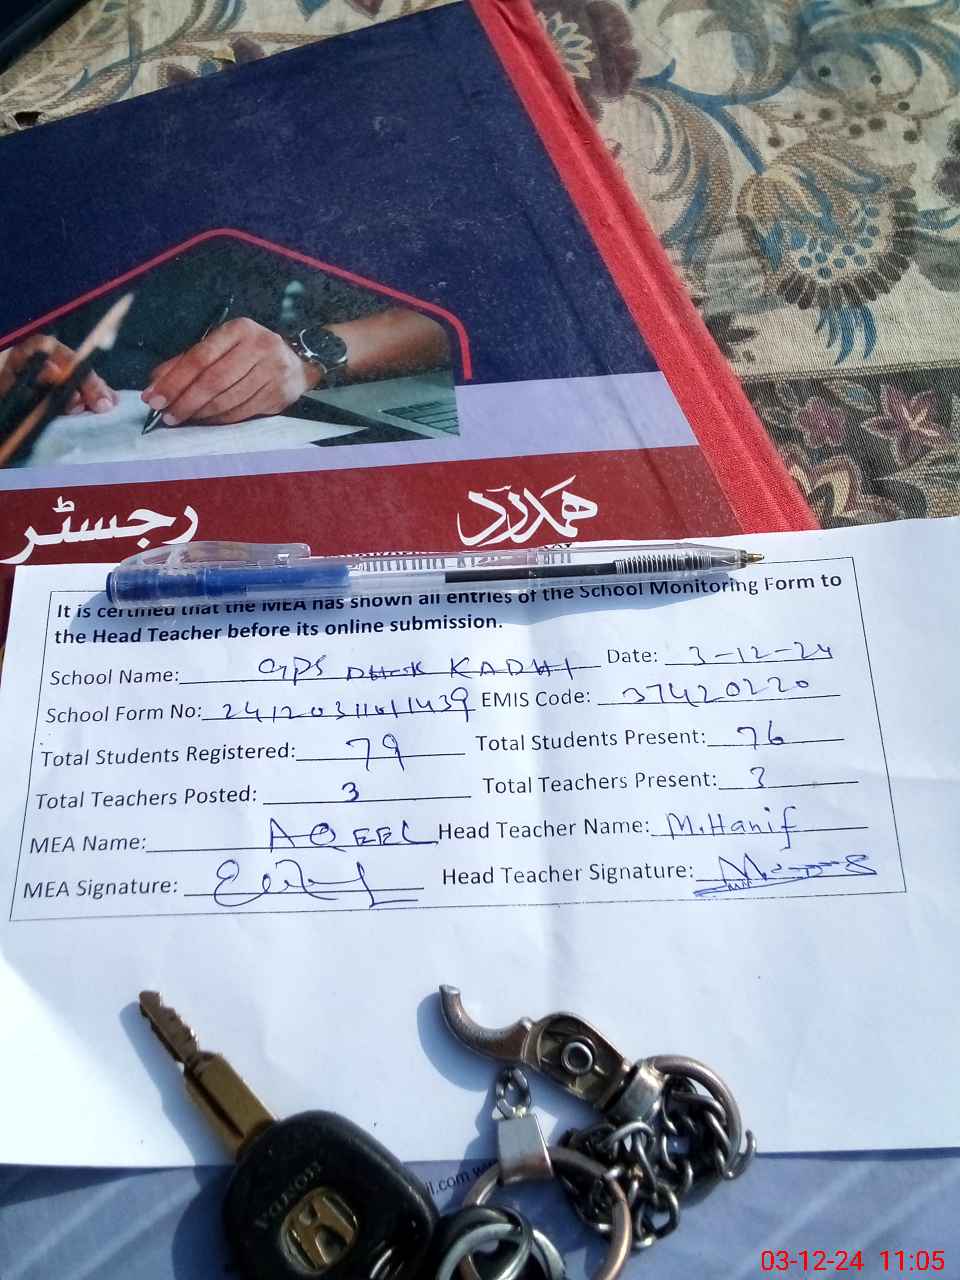 رجسٹر ہمدرد
It is certified that the MEA has shown all entries of the School Monitoring Form to
the Head Teacher before its online submission.
School Name: GPS DHOK KADHI Date: 3-12-24
School Form No: EMIS Code: 37420220
Total Students Registered: 79 Total Students Present: 76
Total Teachers Posted: 3 Total Teachers Present: 3
MEA Name: AQEEL Head Teacher Name: M.Hanif
MEA Signature: Head Teacher Signature:
HONDA
il.com
03-12-24 11:05